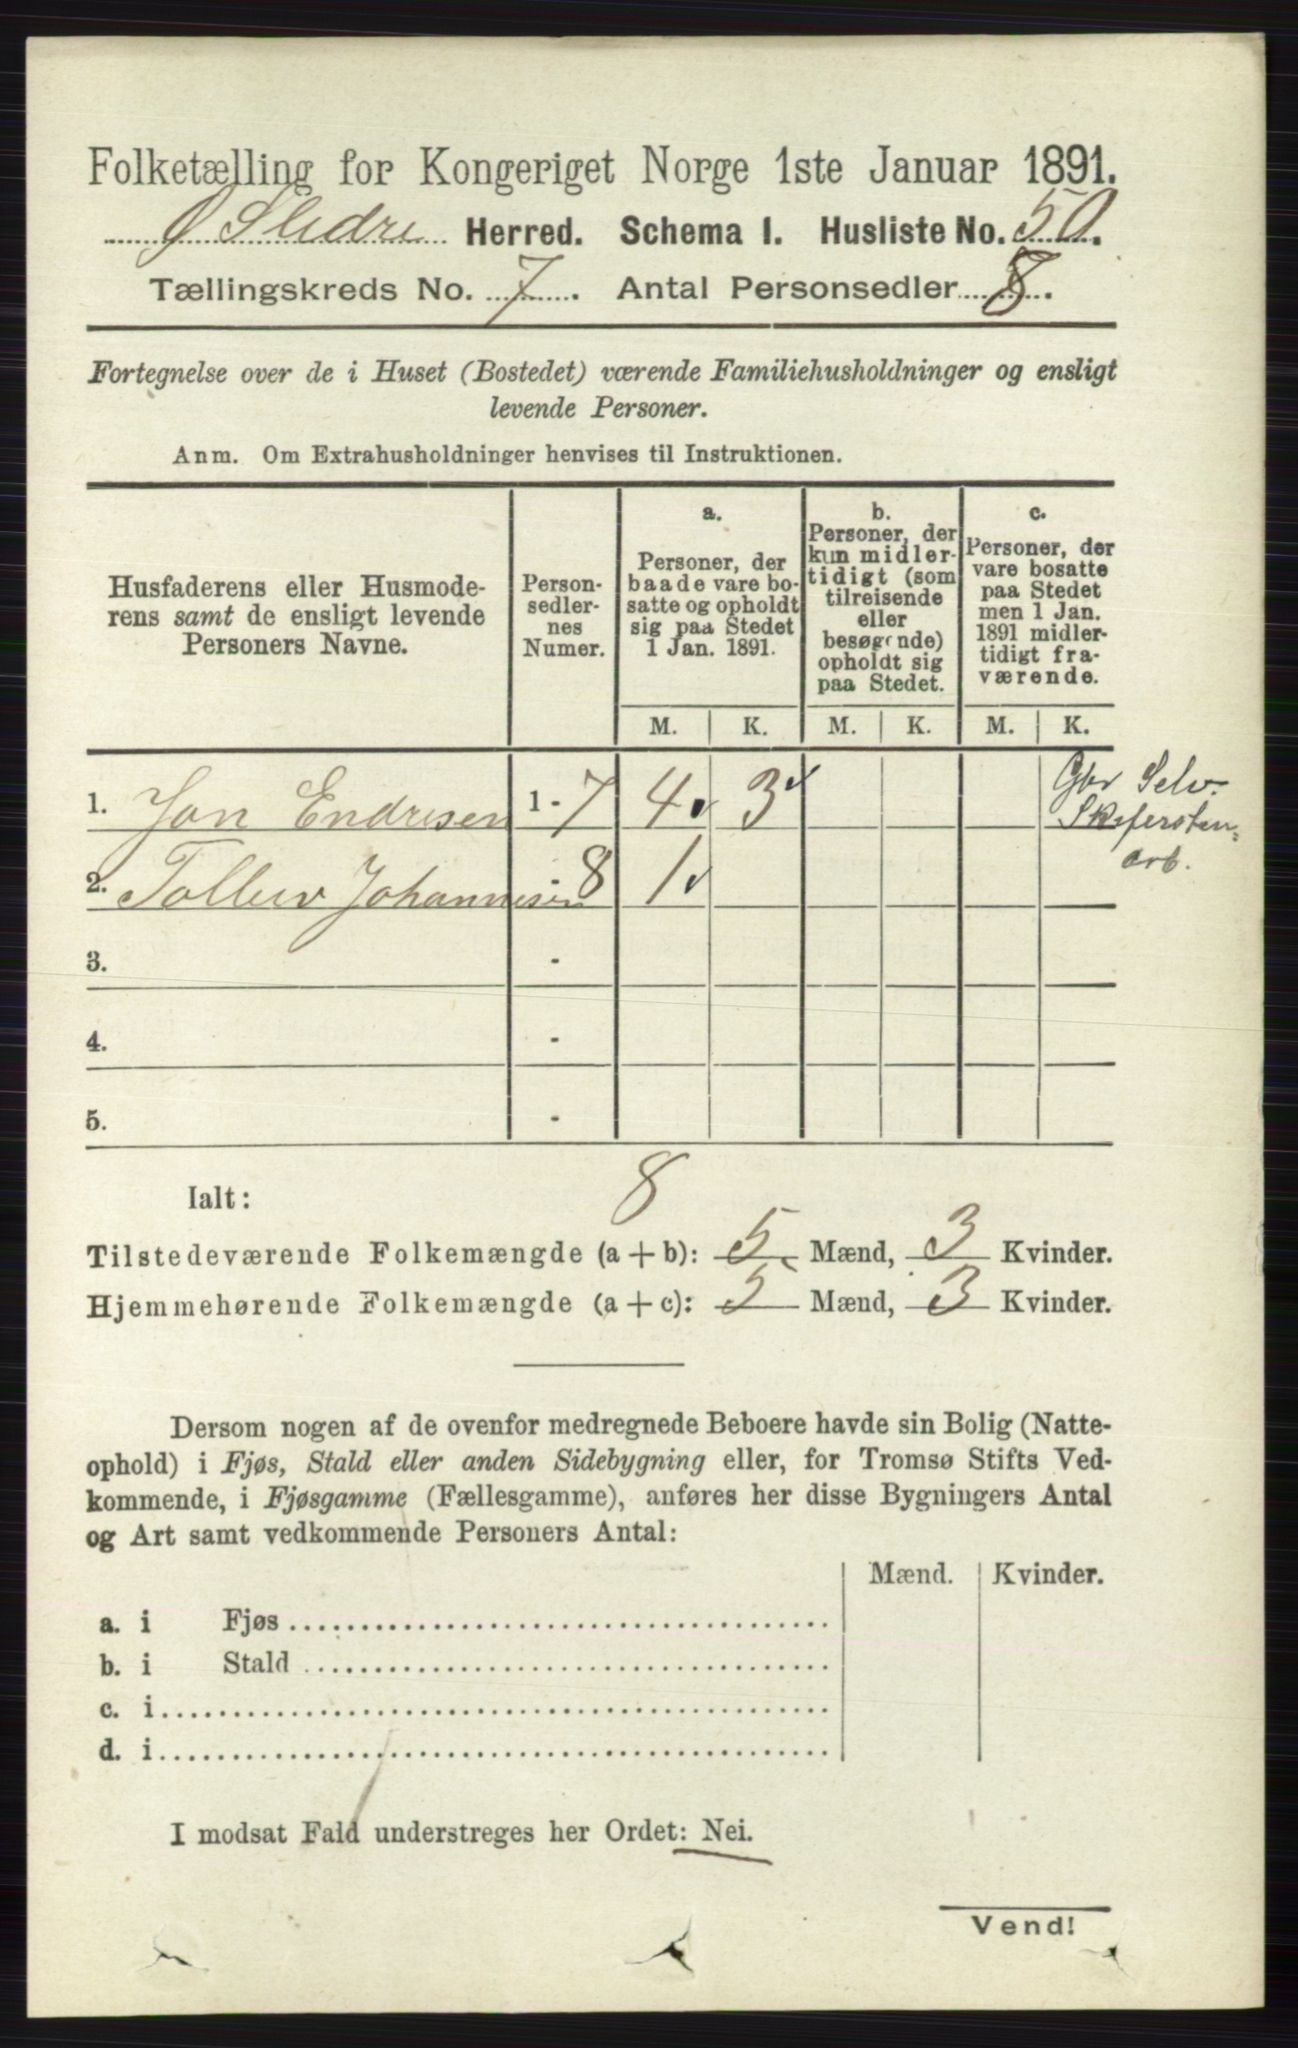 Folketælling for Kongeriget Norge 1ste Januar 1891.
Ø Slidre Herred. Schema I. Husliste No. 50.
Tællingskreds No. 7. Antal Personsedler 8.
Fortegnelse over de i Huset (Bostedet) værende Familiehusholdninger og ensligt
levende Personer.
Anm. Om Extrahusholdninger henvises til Instruktionen.
Husfaderens eller Husmode-
rens samt de ensligt levende
Personers Navne.
Person-
sedler-
nes
Numer.
a.
Personer, der
baade vare bo-
satte og opholdt
sig paa Stedet
1 Jan. 1891.
b.
Personer, der
kun midler-
tidigt (som
tilreisende
eller
besøgende)
opholdt sig
paa Stedet.
c.
Personer, der
vare bosatte
paa Stedet
men 1 Jan.
1891 midler-
tidigt fra-
værende.
M. K. M. K. M. K.
1. Jon Endresen 1 - 7 4 3
Gbr Selv.
Skifersten
arb.
2. Tollev Johannesen - 8 1
3. -
4. -
5. -
8
Ialt:
Tilstedeværende Folkemængde (a + b): 5 Mænd, 3 Kvinder.
Hjemmehørende Folkemængde (a + c): 5 Mænd, 3 Kvinder.
Dersom nogen af de ovenfor medregnede Beboere havde sin Bolig (Natte-
ophold) i Fjøs, Stald eller anden Sidebygning eller, for Tromsø Stifts Ved-
kommende, i Fjøsgamme (Fællesgamme), anføres her disse Bygningers Antal
og Art samt vedkommende Personers Antal:
Mænd. Kvinder.
a. i Fjøs
b. i Stald
c. i
d. i
I modsat Fald understreges her Ordet: Nei.
Vend!